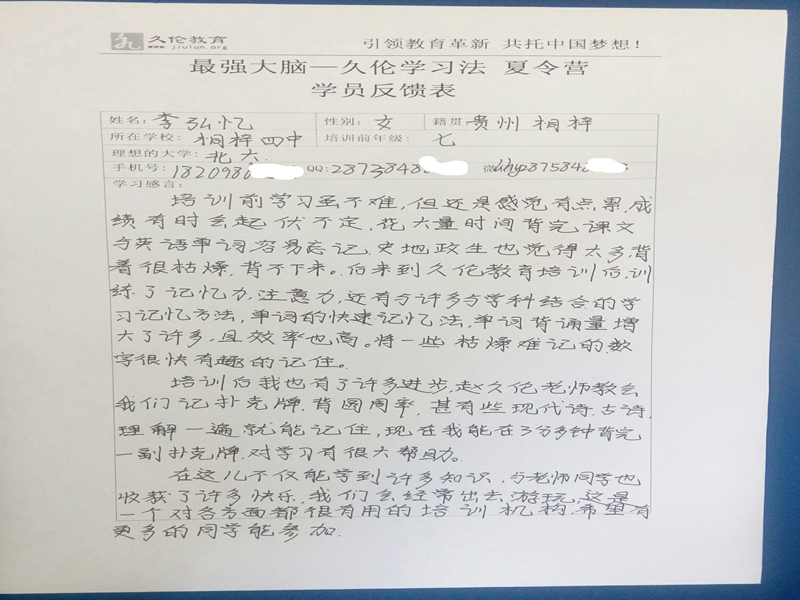 久伦教育
www.jiulun.org
引领教育革新 共托中国梦想！
最强大脑—久伦学习法 夏令营
学员反馈表
姓名：李弘忆 性别：女 籍贯：贵州桐梓
所在学校：桐梓四中 培训前年级：七
理想的大学：北大
手机号：1820980 QQ：28738484
学习感言：
培训前学习虽不难，但还是感觉有点累，成
绩有时会起伏不定，花大量时间背完课文
与英语单词容易忘记，史地政生也觉得太多，背
着很枯燥，背不下来。后来到久伦教育培训后，训
练了记忆力，注意力，还有与许多与学科结合的学
习记忆方法，单词的快速记忆法，单词背诵量增
大了许多，且效率也高。将一些枯燥难记的数
字很快有趣的记住。
培训后我也有了许多进步，赵久伦老师教会
我们记扑克牌，背圆周率，甚有些现代诗、古诗，
理解一遍就能记住，现在我能在3分多钟背完
一副扑克牌，对学习有很大帮助。
在这儿不仅能学到许多知识，与老师同学也
收获了许多快乐，我们会经常出去游玩，这是
一个对各方面都很有用的培训机构，希望有
更多的同学能参加．